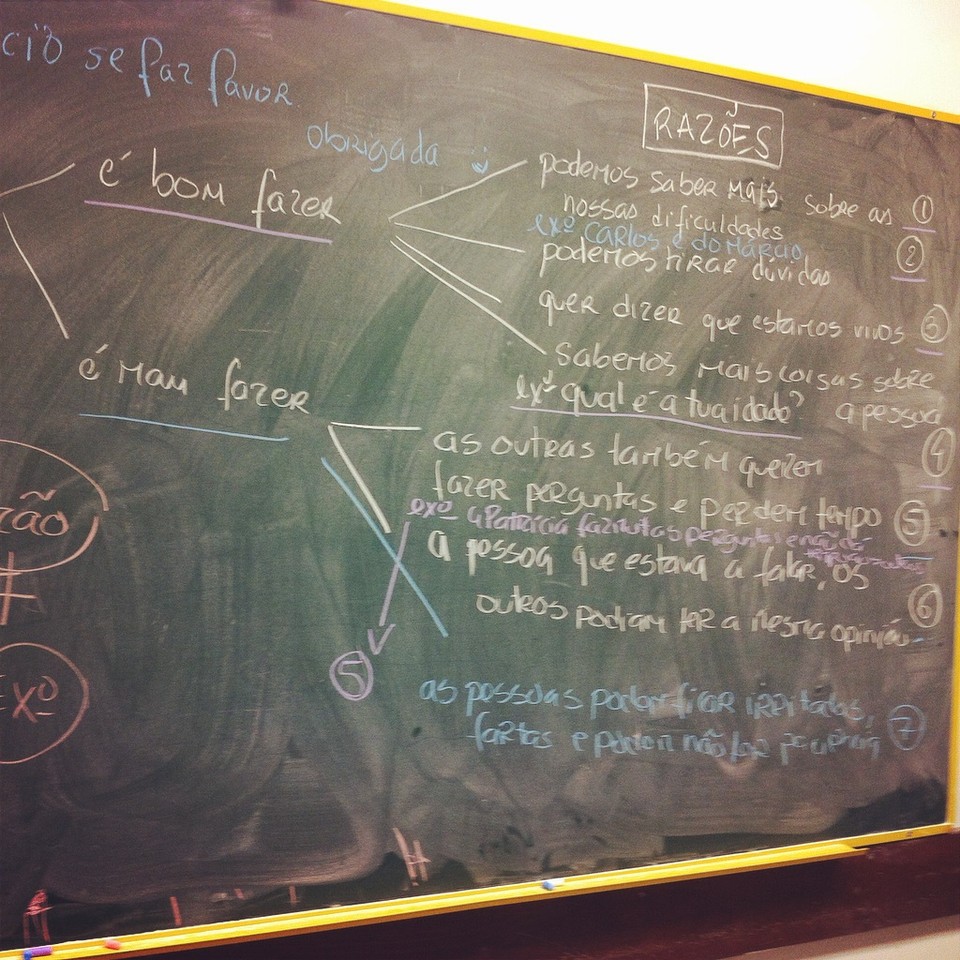 se faz favor.
obrigada
RAZÕES
é bom fazer
podemos saber mais sobre as
nossas dificuldades
1
exº CARLOS e do MÁRCIO
podemos tirar dúvidas
2
quer dizer que estamos vivos
3
sabemos mais coisas sobre
a pessoa
exº qual é a tua idade?
4
é mau fazer
as outras também querem
fazer perguntas e perdem tempo
5
exº a Patrícia faz muitas perguntas e não dá
a pessoa que estava a falar, os
outros podiam ter a mesma opinião
6
5
as pessoas podem ficar irritadas,
fartas e podem não ter paciência
7
zão
+
Exº